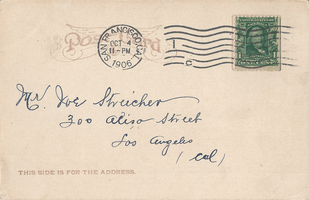 Post Card
SAN FRANCISCO, CAL.
OCT 4
11-PM
1906
Mr. Joe Streicher
300 Aliso Street
Los Angeles
(Cal)
THIS SIDE IS FOR THE ADDRESS.